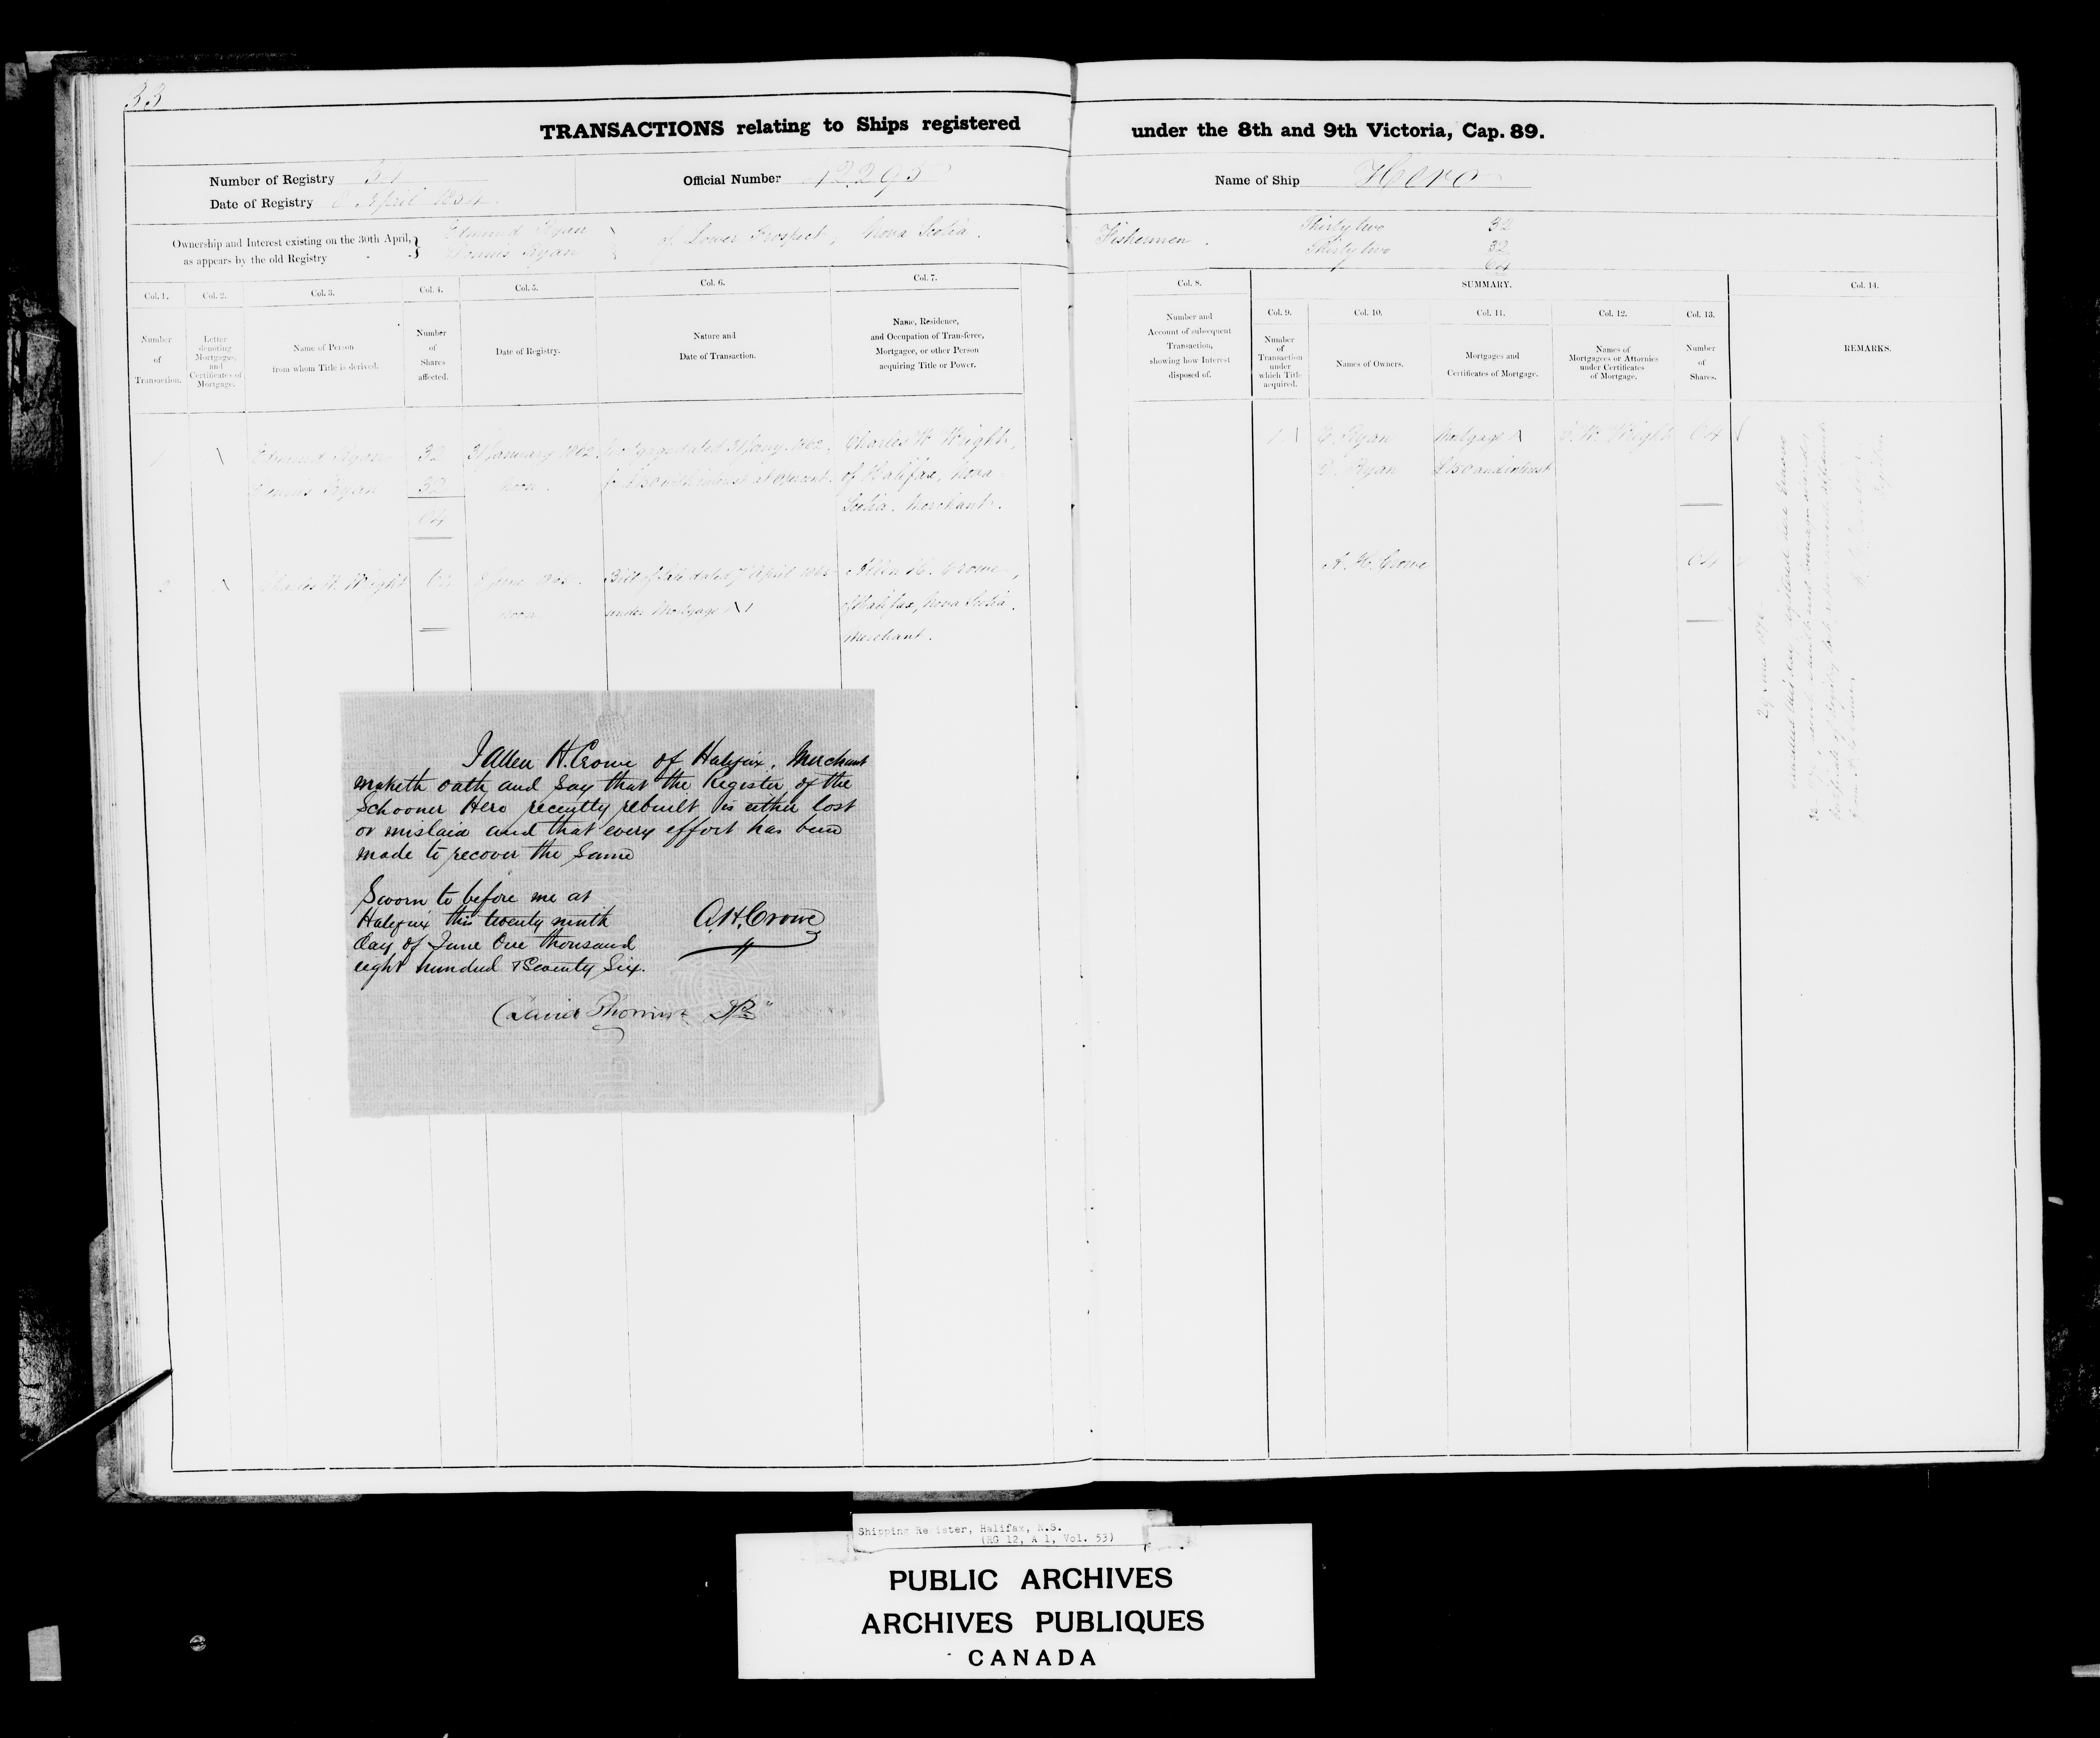 33
TRANSACTIONS relating to Ships registered under the 8th and 9th Victoria, Cap. 89.
Number of Registry
Official Number
Name of Ship Hero
Date of Registry April
Ownership and Interest existing on the 30th April, as appears by the old Registry
Edmund Ryan
Dennis Ryan
of Lower Prospect, Nova Scotia.
Fishermen.
Thirtytwo 32
Thirtytwo 32
64
Col. 1.
Number of Transaction.
Col. 2.
Letter denoting Mortgages, and Certificates of Mortgage.
Col. 3.
Name of Person from whom Title is derived.
Col. 4.
Number of Shares affected.
Col. 5.
Date of Registry.
Col. 6.
Nature and Date of Transaction.
Col. 7.
Name, Residence, and Occupation of Transferee, Mortgagee, or other Person acquiring Title or Power.
Col. 8.
Number and Account of subsequent Transaction, showing how Interest disposed of.
SUMMARY.
Col. 9.
Number of Transaction under which Title acquired.
Col. 10.
Names of Owners.
Col. 11.
Mortgages and Certificates of Mortgage.
Col. 12.
Names of Mortgagees or Attornies under Certificates of Mortgage.
Col. 13.
Number of Shares.
Col. 14.
REMARKS.
1 A
Edmund Ryan 32
Dennis Ryan 32
64
31 January 1862
noon.
Mortgage dated 31 Jany. 1862,
for £150 with interest at 6 percent.
Charles W. Wright,
of Halifax, Nova
Scotia. Merchant.
1 A
E. Ryan
D. Ryan
Mortgage A
£150 and interest
C. W. Wright
64
2 A
Charles W. Wright
64
noon
Bill of Sale dated 7 April
under Mortgage A 1
Allen H. Crowe,
of Halifax, Nova Scotia.
Merchant.
A. H. Crowe
64
I Allen H. Crowe of Halifax, Merchant
maketh oath and say that the Register of the
Schooner Hero recently rebuilt is either lost
or mislaid and that every effort has been
made to recover the same
Sworn to before me at
Halifax this twenty ninth
day of June One thousand
eight hundred & Seventy Six.
A. H. Crowe
JP
Shipping Register, Halifax, N.S.
(RG 12, A 1, Vol. 53)
PUBLIC ARCHIVES
ARCHIVES PUBLIQUES
CANADA